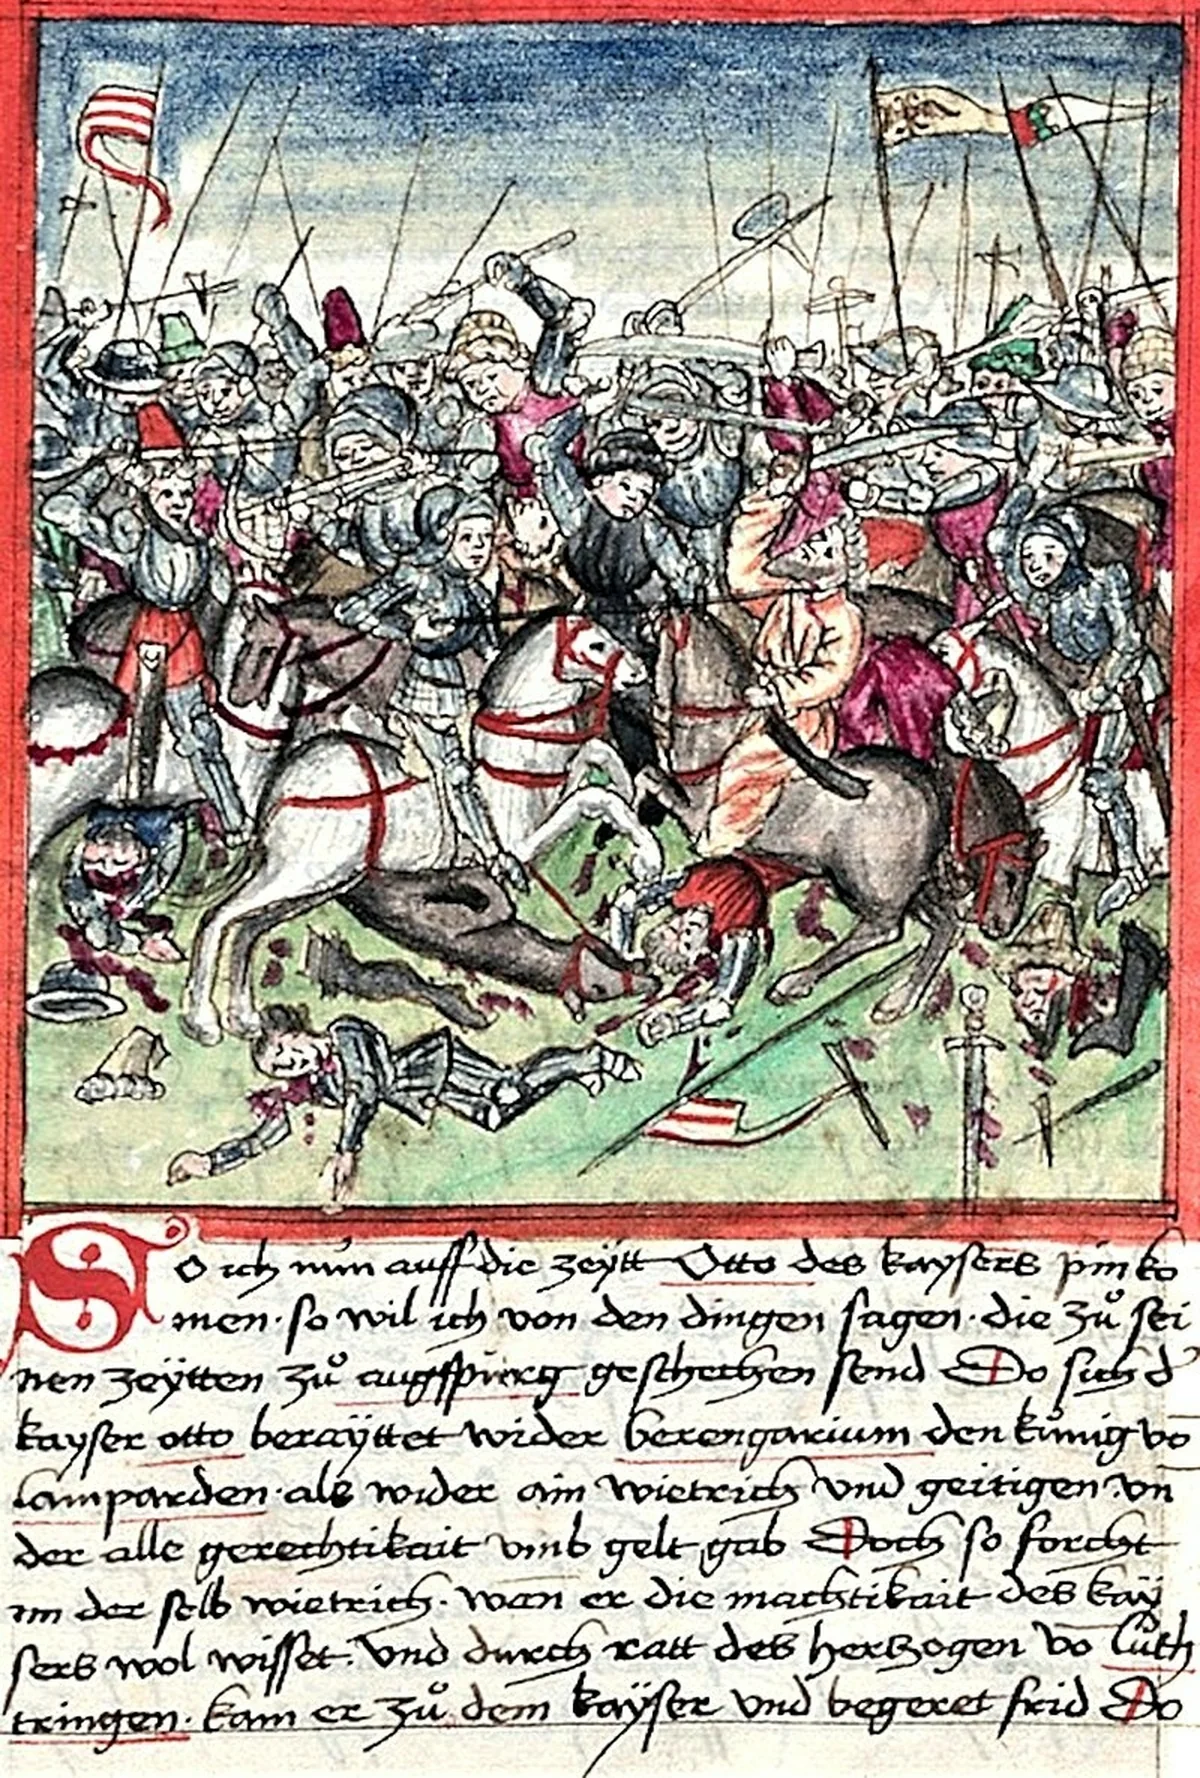 So ich nun auff die zeÿtt Otto des kaysers pin ko
men · so wil ich von den dingen sagen · die zů sei
nen zeÿtten zů augspurg geschechen send Do sich d'
kayser otto beraÿttet wider berengarium den kůnig vo
lamparden · als wider ain wietrich vnd geitigen · vn
der alle gerechtikait vmb gelt gab Doch so forcht
im der selb wietrich · wan er die machtikait des kaÿ
sers wol wisset · vnd durch ratt des herzogen vo luth
tringen · kam er zů dem kaÿser vnd begeret frid Do